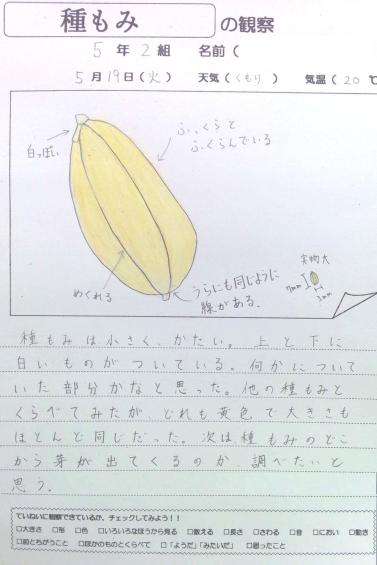 種もみ の観察
5年2組 名前(
5月19日(火) 天気(くもり) 気温(20℃
白っぽい
ふっくらと
ふくらんでいる
めくれる
うらにも同じように
線がある。
実物大
7mm
3mm
種もみは小さく、かたい。上と下に
白いものがついている。何かについて
いた部分かなと思った。他の種もみと
くらべてみたが、どれも黄色で大きさも
ほとんど同じだった。次は種もみのどこ
から芽が出てくるのか、調べたいと
思う。
ていねいに観察できているか、チェックしてみよう！！
□大きさ □形 □色 □いろいろなほうから見る □数える □長さ □さわる □音 □におい □動き
□前とちがうこと □ほかのものとくらべて □「ようだ」「みたいだ」 □思ったこと